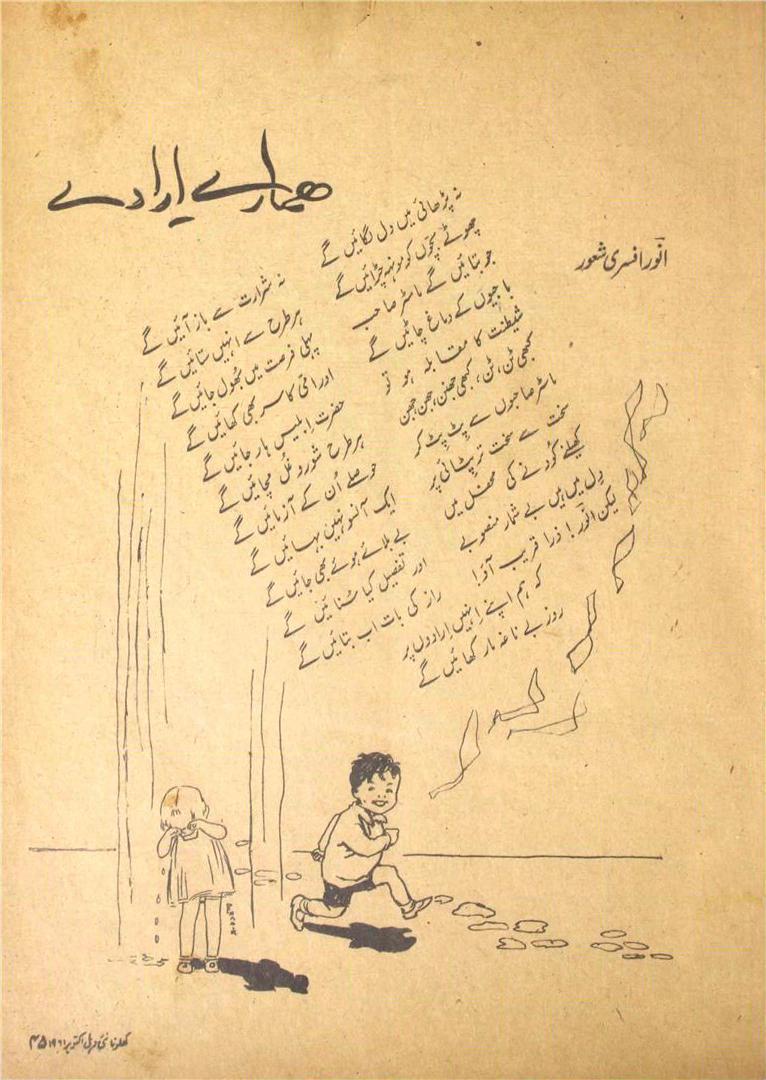 ہمارے ارادے
انورؔ افسری شعور
نہ پڑھائی میں دل لگائیں گے نہ شرارت سے باز آئیں گے
چھوٹے بچّوں کو مونہہ چڑائیں گے ہر طرح سے انہیں ستائیں گے
جو بتائیں گے ماسٹر صاحب پہلی فرصت میں بھول جائیں گے
باجیوں کے دماغ چاٹیں گے اور امّی کا سر بھی کھائیں گے
شیطنت کا مقابلہ ہو تو حضرت ابلیس ہار جائیں گے
کبھی ٹن، ٹن، کبھی جھن، جھن، جھن ہر طرح شور و غُل مچائیں گے
ماسٹر صاحبوں سے پِٹ پِٹ کر حوصلے اُن کے آزمائیں گے
سخت سے سخت تر پِٹائی پر ایک آنسو نہیں بہائیں گے
کھیلنے کُودنے کی محفل میں بے بلائے ہوئے بھی جائیں گے
دِل میں ہیں بے شمار منصوبے اور تفصیل کیا سُنائیں گے
لیکن انورؔ! ذرا قریب آؤ! راز کی بات اب بتائیں گے
کہ ہم اپنے اِنہیں اِرادوں پر
روز بے ناغہ مار کھائیں گے
کھلونا نئی دہلی اکتوبر ۱۹۶۱ ۴۵